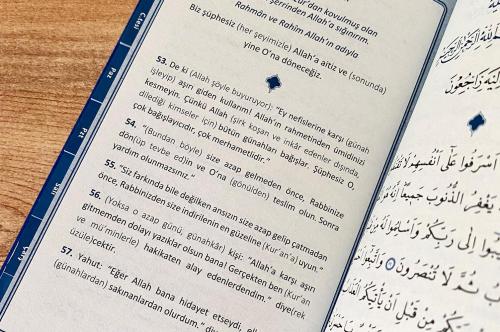 kovulmuş olan
şerrinden Allah'a sığınırım.
Rahmân ve Rahîm Allah'ın adıyla
Biz şüphesiz (her şeyimizle) Allah'a aitiz ve (sonunda)
yine O'na döneceğiz.
53. De ki (Allah şöyle buyuruyor): "Ey nefislerine karşı (günah
işleyip) aşırı giden kullarım! Allah'ın rahmetinden ümidinizi
kesmeyin. Çünkü Allah (şirk koşan ve inkâr edenler dışında,
dilediği kimseler için) bütün günahları bağışlar. Şüphesiz O,
çok bağışlayıcıdır, çok merhametlidir."
54. "(Bundan böyle) size azap gelmeden önce, Rabbinize
dön(üp tevbe edi)n ve O'na (gönülden) teslim olun. Sonra
yardım olunmazsınız."
55. "Siz farkında bile değilken ansızın size azap gelip çatmadan
önce, Rabbinizden size indirilenin en güzeline (Kur'an'a) uyun."
56. (Yoksa o azap günü, günahkâr) kişi: "Allah'a karşı aşırı
gitmemden dolayı yazıklar olsun bana! Gerçekten ben (Kur'an
ve mü'minlerle) hakikaten alay edenlerdendim." diye(rek
üzüle)cektir.
57. Yahut: "Eğer Allah bana hidayet etseydi,
(günahlardan) sakınanlardan olurdum."
C.tesi
Pzt
Salı
Çarş
أَسْرَفُوا عَلَىٰ أَنْفُسِهِمْ لَا
يَغْفِرُ الذُّنُوبَ جَمِيعًا إِنَّهُ
إِلَىٰ رَبِّكُمْ وَأَسْلِمُوا لَهُ
ثُمَّ لَا تُنْصَرُونَ وَاتَّبِعُوا
مِنْ قَبْلِ أَنْ يَأْتِيَكُمُ